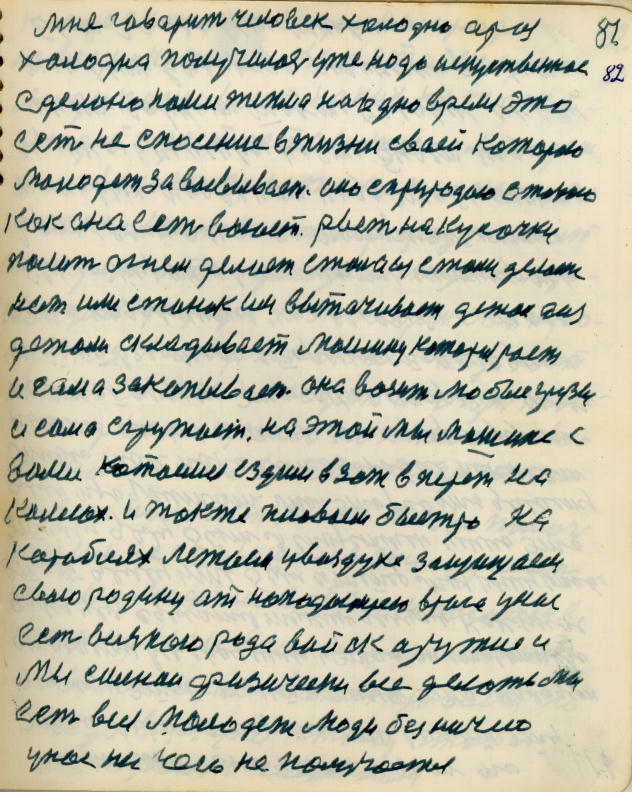 мне говарит человек холодно а раз 81
холодна получилося уже надо искуственное 82
сделоно нами тепла на адно время это
ест не спосение в жизни сваей которою
молодеж завоевывает. она с природаю
как она ест воюет. рвет на кусочки
полит огнем делает
или станок им вытачивает детоль а из
детоли складывает машину которы роет
и сама закапывает. она возит любые грузы
и сома сгружает. на этой мы машине с
вами катаемся ездим взат вперет на
колесах. и также плаваем быстро на
караблях летаем у воздухе защищаем
свою родину ат нападающего врага у нас
ест всякого рода вайск аружие и
мы силнои физически все делать
ест все молодеж люди без ничего
у нас ни чего не получается